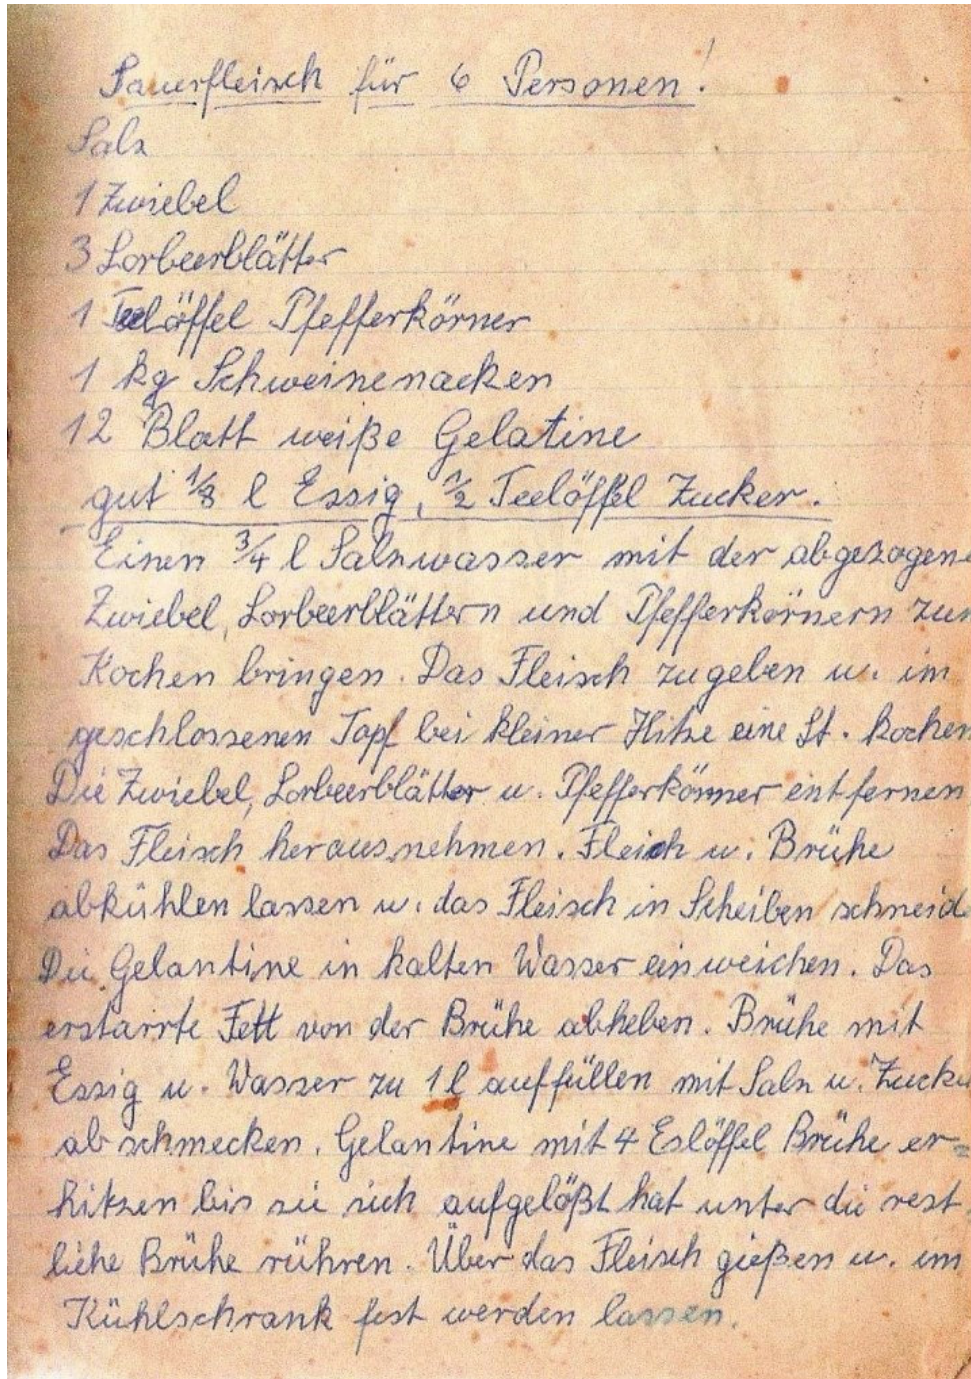 Sauerfleisch für 6 Personen!
Salz
1 Zwiebel
3 Lorbeerblätter
1 Teelöffel Pfefferkörner
1 kg Schweinenacken
12 Blatt weiße Gelatine
gut 1/8 l Essig, 1/2 Teelöffel Zucker.
Einen 3/4 l Salzwasser mit der abgezogene
Zwiebel, Lorbeerblättern und Pfefferkörnern zum
Kochen bringen. Das Fleisch zugeben u. im
geschlossenen Topf bei kleiner Hitze eine St. kochen
Die Zwiebel, Lorbeerblätter u. Pfefferkörner entfernen
Das Fleisch herausnehmen. Fleich u. Brühe
abkühlen lassen u. das Fleisch in Scheiben schneide
Die Gelantine in kalten Wasser einweichen. Das
erstarrte Fett von der Brühe abheben. Brühe mit
Essig u. Wasser zu 1 l auffüllen mit Salz u. Zucke
abschmecken. Gelantine mit 4 Eslöffel Brühe er=
hitzen bis sie sich aufgelößt hat unter die rest
liche Brühe rühren. Über das Fleisch gießen u. im
Kühlschrank fest werden lassen.